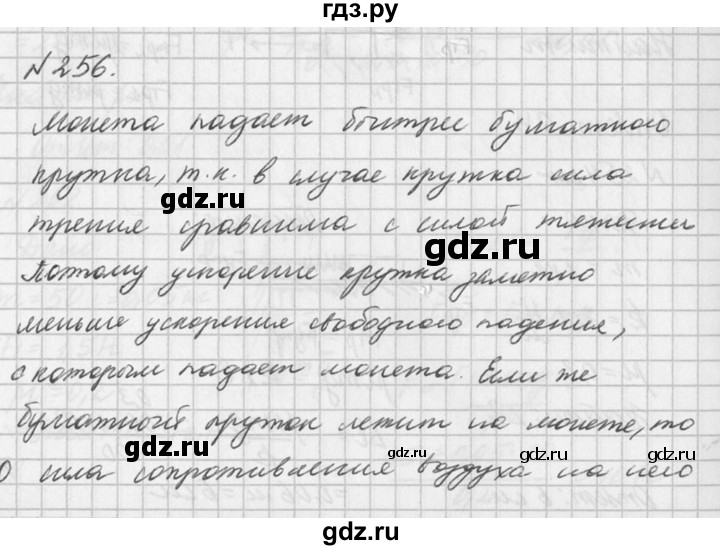 гдз.ру
№256.
Монета падает быстрее бумажного
кружка, т.к. в случае кружка сила
gdz.ru
трения сравнима с силой тяжести
gdz.ru
Поэтому ускорение кружка заметно
меньше ускорения свободного падения,
с которым падает монета. Если же
бумажный кружок лежит на монете, то
gdz.ru
gdz.ru
gdz.ru
сила сопротивления воздуха на него
gdz.ru